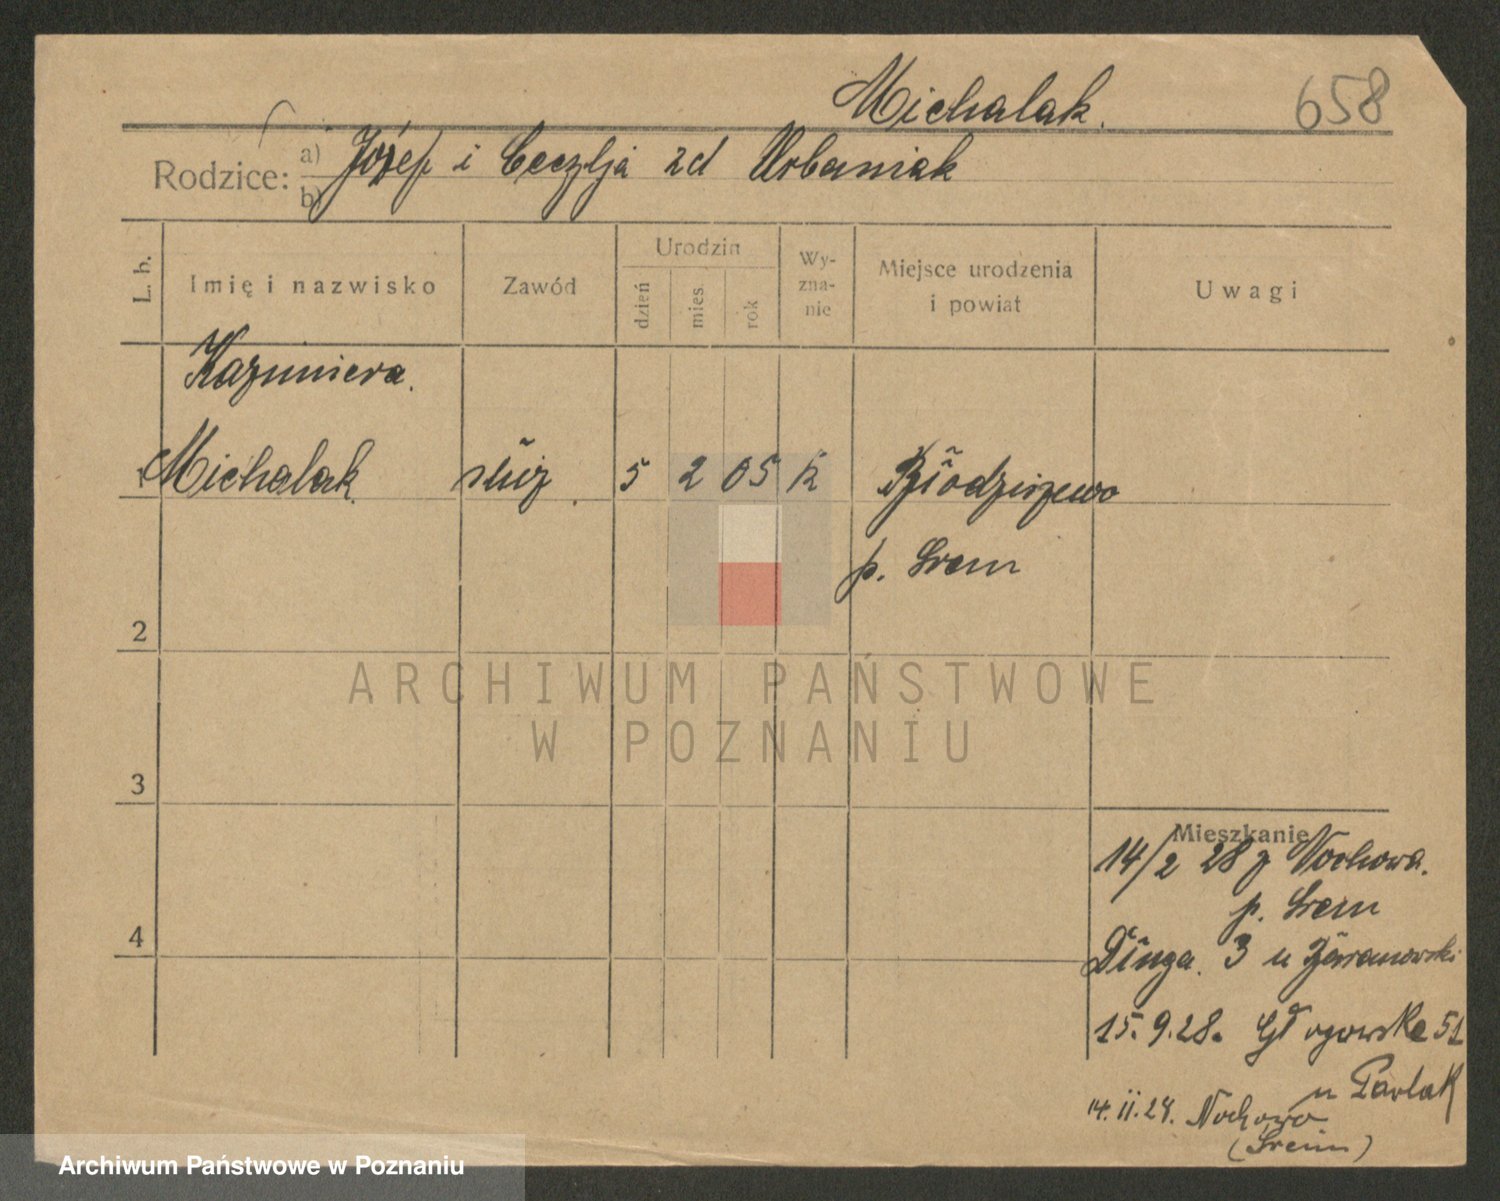 Michalak.
658
Rodzice:
a) Józef i Cecylja zd Urbaniak
b)
L. b.
Imię i nazwisko
Zawód
Urodzin
dzień
mies.
rok
Wy-
zna-
nie
Miejsce urodzenia
i powiat
Uwagi
Kazimiera.
1 Michalak służ. 5 2 05 k
p. Śrem
2
ARCHIWUM PAŃSTWOWE
W POZNANIU
3
Mieszkanie
14/2 28 z Nochowa.
p. Śrem
4
Długa. 3 u
15.9.28. Głogowska 51
u Pawlak
Nochowo
(Śrem)
Archiwum Państwowe w Poznaniu